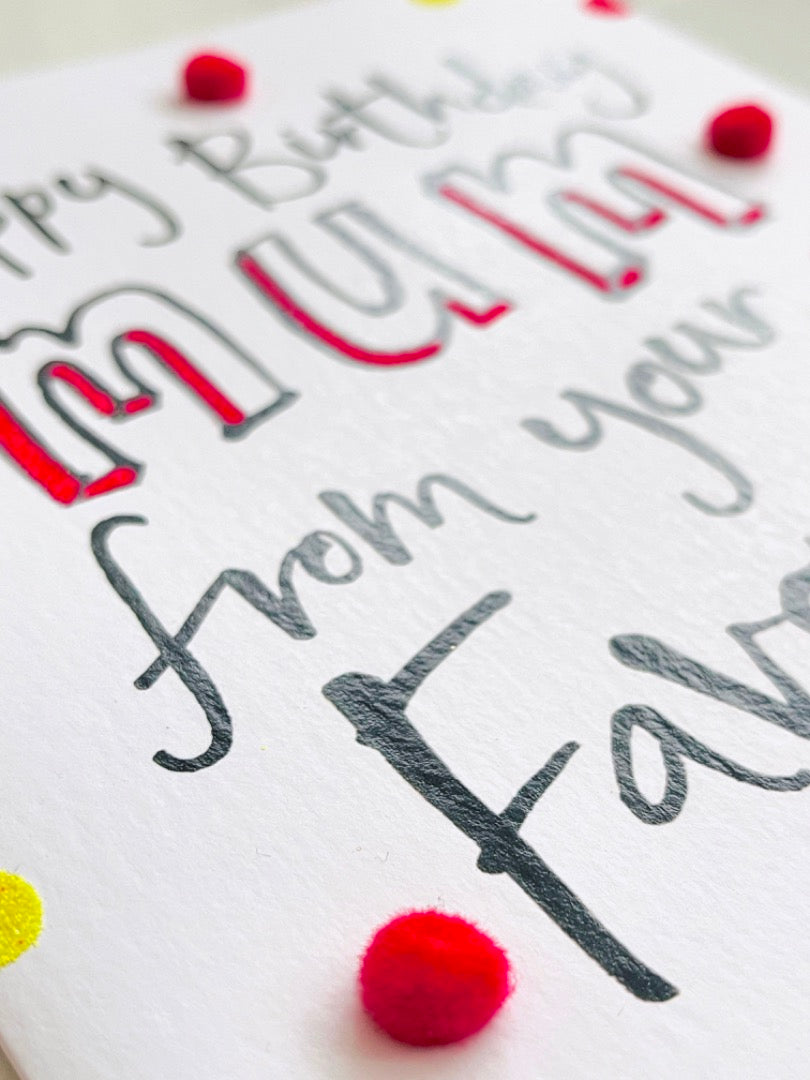 ppy Birthday
MUM
from your
Fav